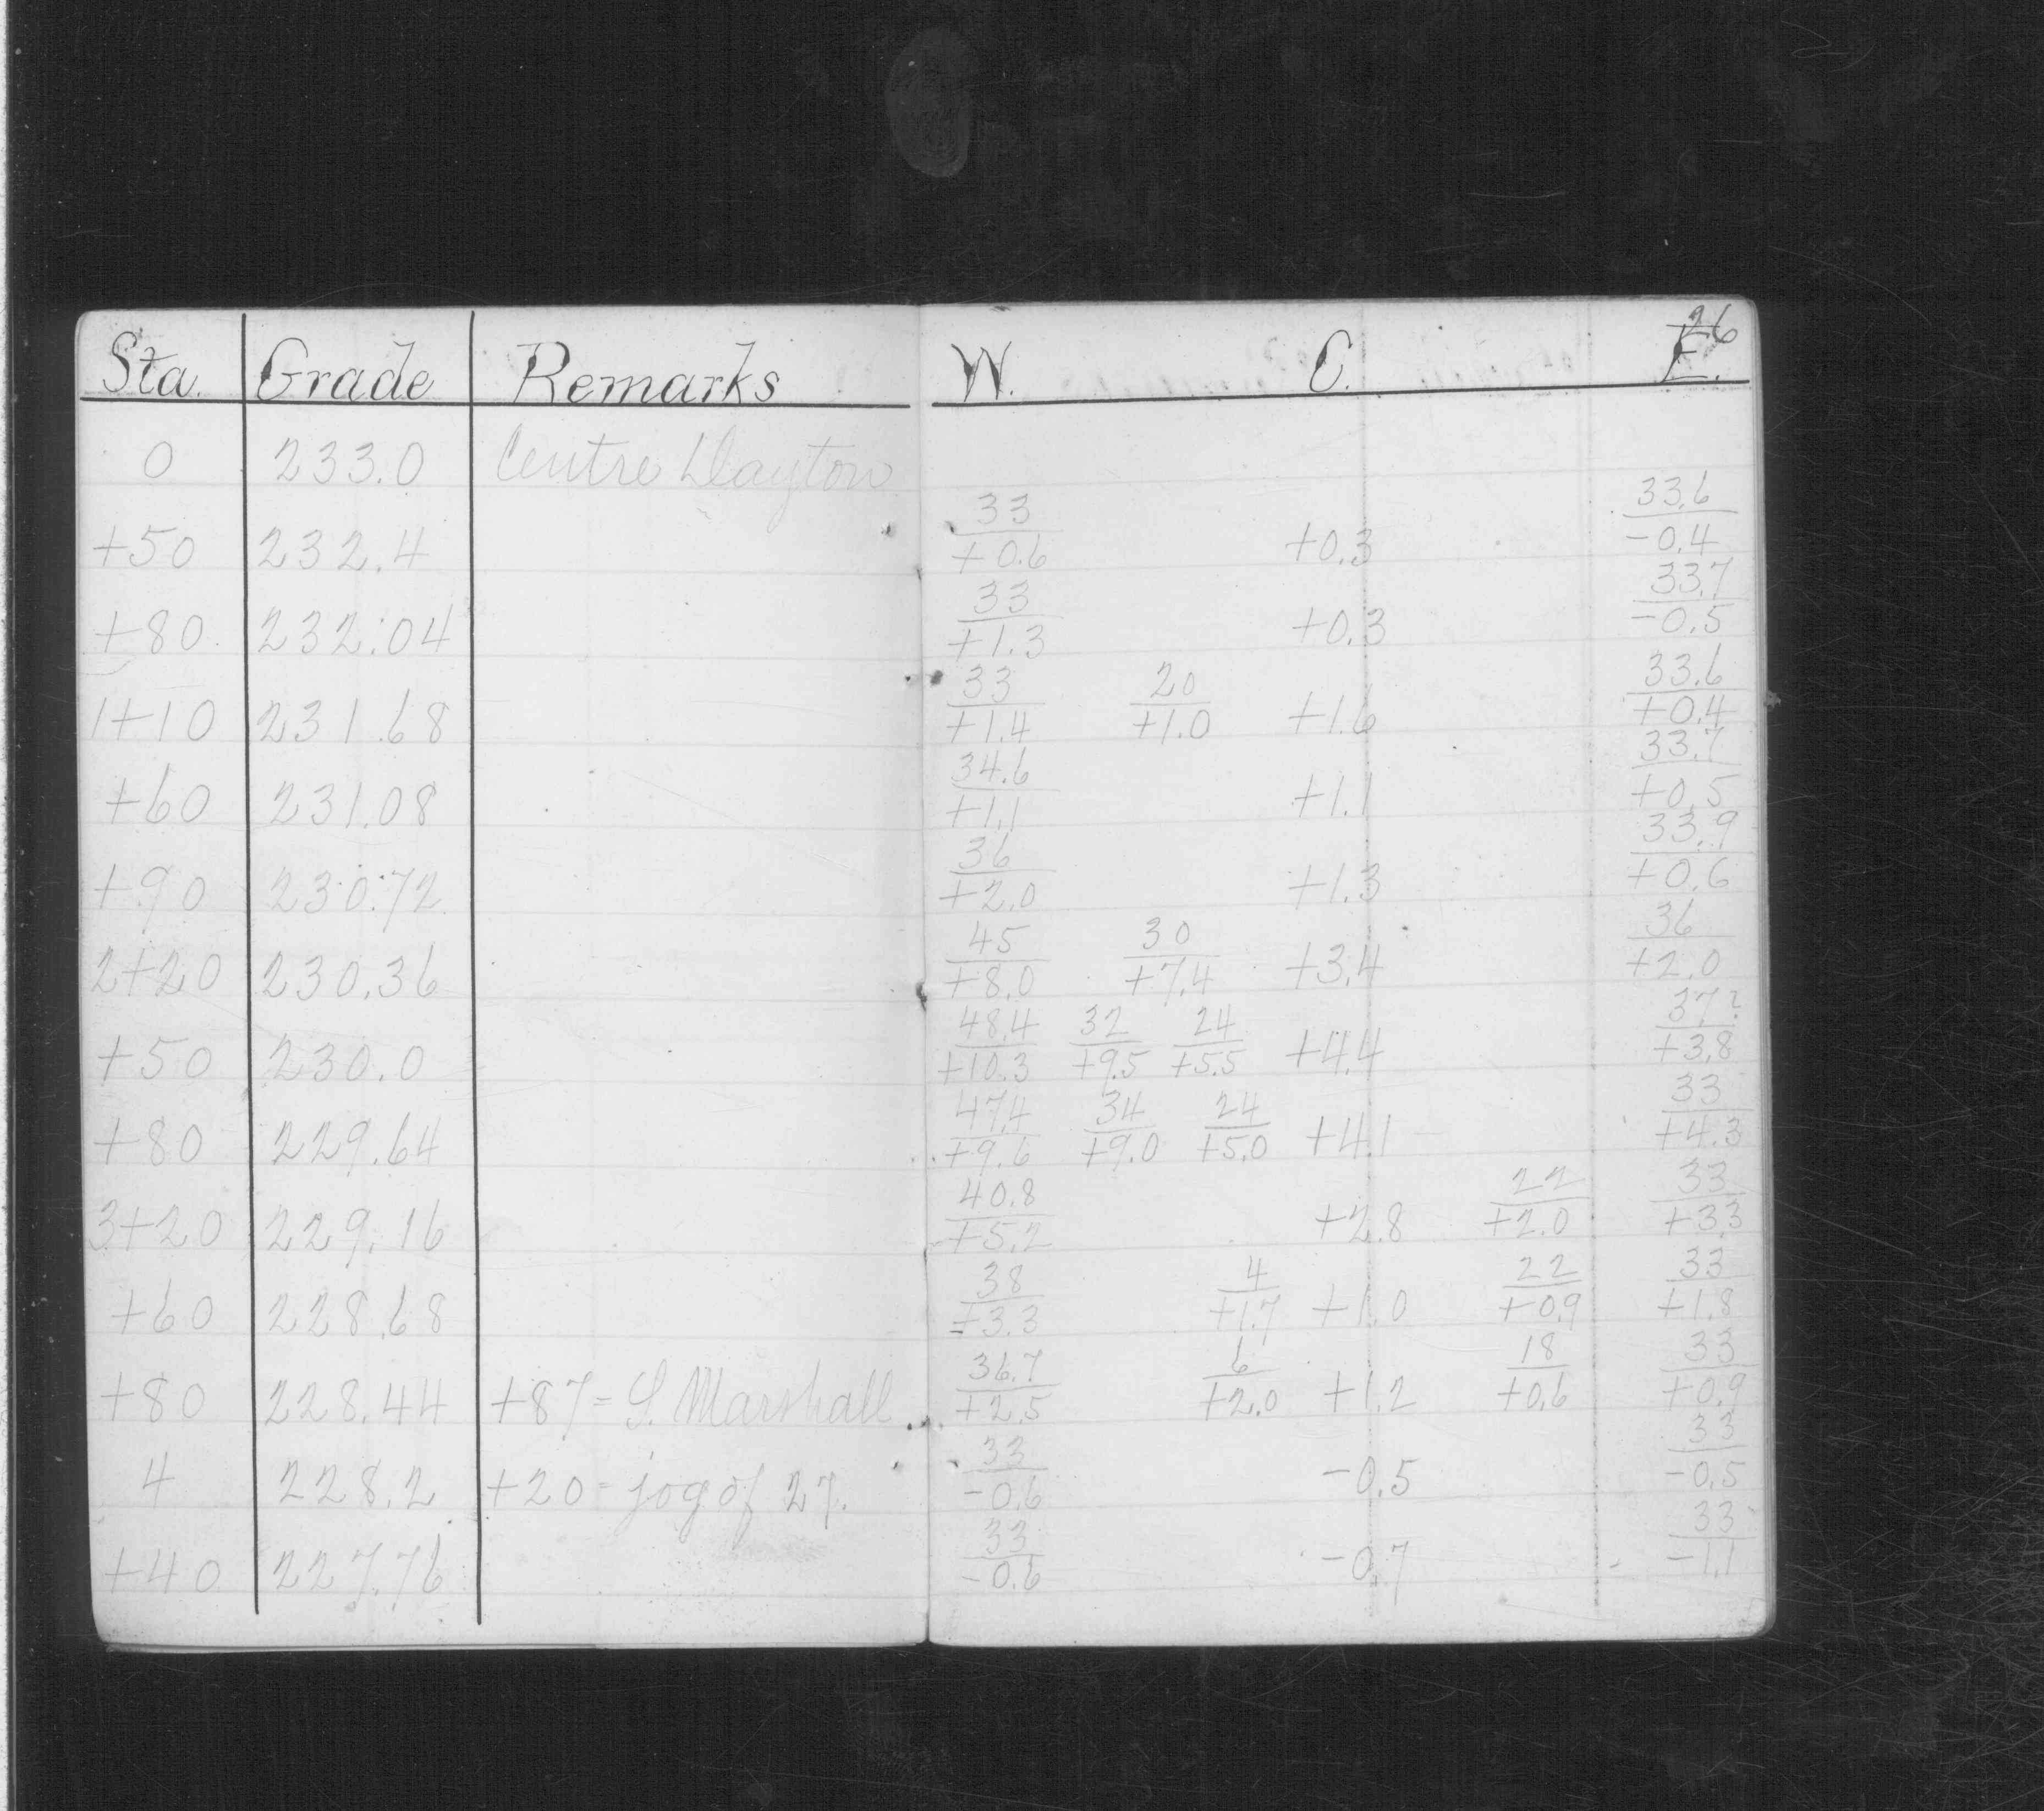 26
Sta. Grade Remarks W. C. E.
0 233.0 Centre Dayton
33 33.6
+50 232.4 +0.6 +0.3 -0.4
33 33.7
+80 232.04 +1.3 +0.3 -0.5
33 20 33.6
1+10 231.68 +1.4 +1.0 +1.6 +0.4
34.6 33.7
+60 231.08 +1.1 +1.1 +0.5
36 33.9
+90 230.72 +2.0 +1.3 +0.6
45 30 36
2+20 230.36 +8.0 +7.4 +3.4 +2.0
48.4 32 24 37.?
+50 230.0 +10.3 +9.5 +5.5 +4.4 +3.8
47.4 34 24 33
+80 229.64 +9.6 +9.0 +5.0 +4.1 +4.3
40.8 22 33
3+20 229.16 +5.2 +2.8 +2.0 +3.3
38 4 22 33
+60 228.68 +3.3 +1.7 +1.0 +0.9 +1.8
36.7 6 18 33
+80 228.44 +87 = S. Marshall +2.5 +2.0 +1.2 +0.6 +0.9
33 33
4 228.2 +20 = jog of 27. -0.6 -0.5 -0.5
33 33
+40 227.76 -0.6 -0.7 -1.1